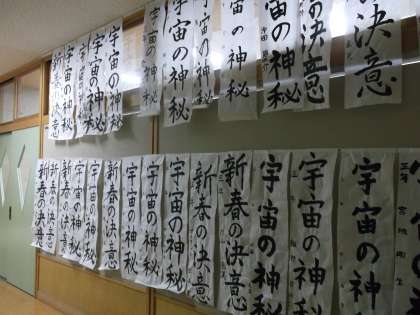 新春の決意
宇宙の神秘
宇宙の神秘
宇宙の神秘
宇宙の神秘
宇宙の神秘
宇宙の神秘
宇宙の神秘
宇宙の神秘
新春の決意
の決意
新春の決意
新春の決意
新春の決意
宇宙の神秘
宇宙の神秘
新春の決意
宇宙の神秘
宇宙の神秘
宇宙の神秘
新春の決意
新春の決意
宇宙の神秘
宇宙の神秘
宇宙の神秘